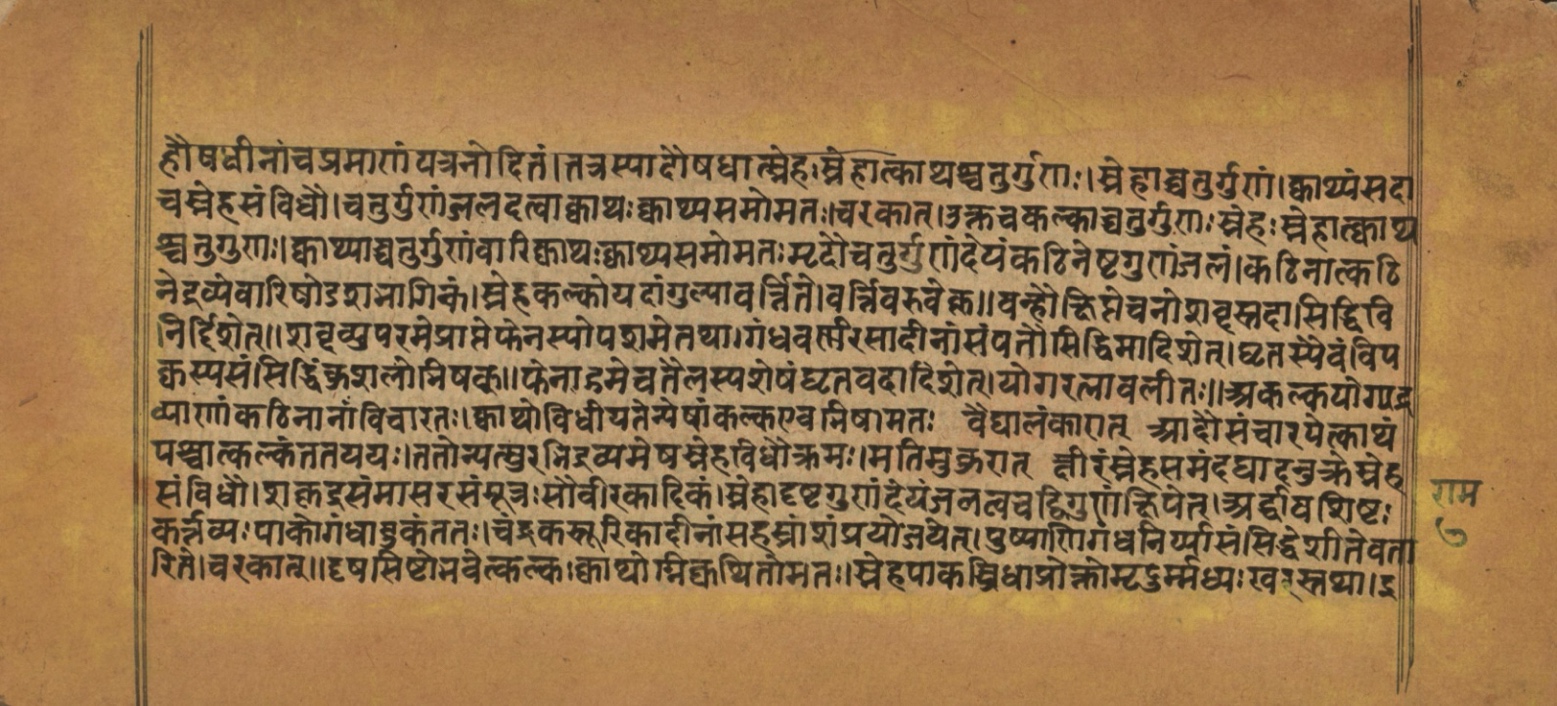 हौषधीनांचप्रमाणंयत्रनोदितं।तत्रस्यादौषधात्स्नेहःस्नेहात्क्वाथश्चतुर्गुणः।स्नेहाच्चतुर्गुणं।क्वाथ्यंसदा
चस्नेहसंविधौ।चतुर्गुणंजलदत्वाक्वाथःक्वाथ्यसमोमतः।चरकात्।उक्तंचकल्काच्चतुर्गुणःस्नेहःस्नेहात्क्वाथ
श्चतुगुणः।क्वाथ्याच्चतुर्गुणंवारिक्वाथःक्वाथ्यसमोमतःमृदौचतुर्गुणंदेयंकठिनेष्टगुणंजलं।कठिनात्कठि
नेद्रव्येवारिषोडशभागिकं।स्नेहकल्कोयदांगुल्यावर्त्तितो।वर्त्तिवद्भवेत्॥वन्हौक्षिप्तेचनोशब्दस्तदासिद्धिवि
निर्दिशेत्॥शब्देव्युपरमेप्राप्तेफेनस्योपशमेतथा।गंधवर्णरसादीनांसंपतौसिद्धिमादिशेत्।घृतस्यैवंविप
क्वस्यसंसिद्धिंकुशलोभिषक्॥फेनोद्गमेचतैलस्यशेषंघृतवदादिशेत्।योगरत्नावलीतः॥अकल्कयोगाद्र
व्याणांकठिनानांविचारतः।क्वाथोविधीयतेन्येषांकल्कएवभिषामतः वैद्यालंकारात् आदौसंचारयेत्क्वाथं
पश्चात्कल्कंततयय।ततोन्यत्सुरभिद्रव्यमेषस्नेहविधौक्रमः।मतिमुकुरात् क्षीरंस्नेहसमंदद्यादनुक्तेस्नेह
संविधौ।शकृद्रसंमांसरसंमूत्रःसौवीरकादिकं।स्नेहादृष्टगुणंदेयंजलत्वचद्विगुणंक्षिपेत्।अर्द्धावशिष्टः
कर्त्तव्यःपाकोगंधांबुकंततः।चंद्रकस्तूरिकादीनांसहस्रांशंप्रयोजयेत्।पुष्पाणिगंधनिर्य्यासंसिद्धेशीतेवता
रिते।चरकात्॥दृषत्पिष्टोभवेत्कल्क।क्वाथोग्निक्वथितोमतः।स्नेहपाकस्त्रिधाप्रोक्तोमृदुर्म्मध्यःखरस्तथा।ई
राम
७